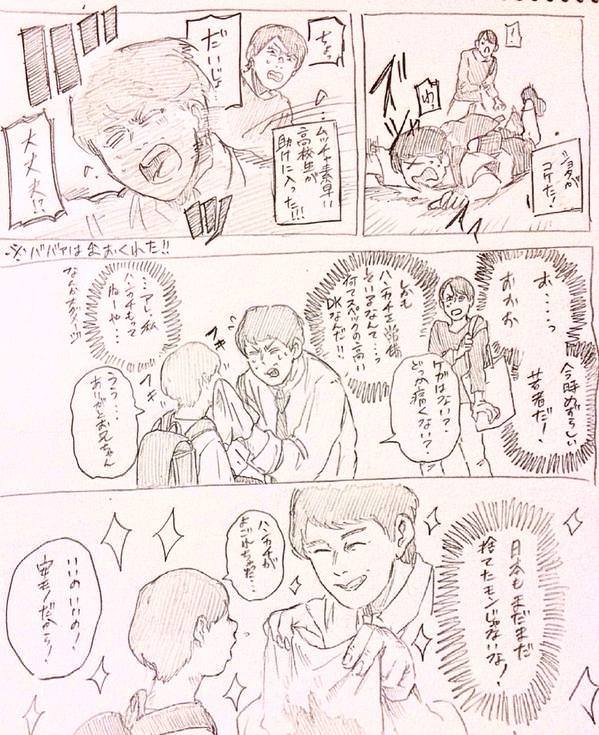 !
わっ
ショタが
コケた!
ちょっ
だいじょ…
ムッチャ素早い
高校生が
助けに入った!!!
大丈夫!?
お……っ
おおお
今時めずらしい
若者だ!
ケガはない?
どっか痛くない?
しかも
ハンカチを常備
しているなんて…っ
何てスペックの高い
DKなんだ!!
…アレ、私
ハンカチもって
ねーや…
うぅっ…
ありがとお兄ちゃん
日本もまだまだ
捨てたモンじゃないな!
ハンカチが
よごれちゃった…
いいのいいの!
安モノだから!